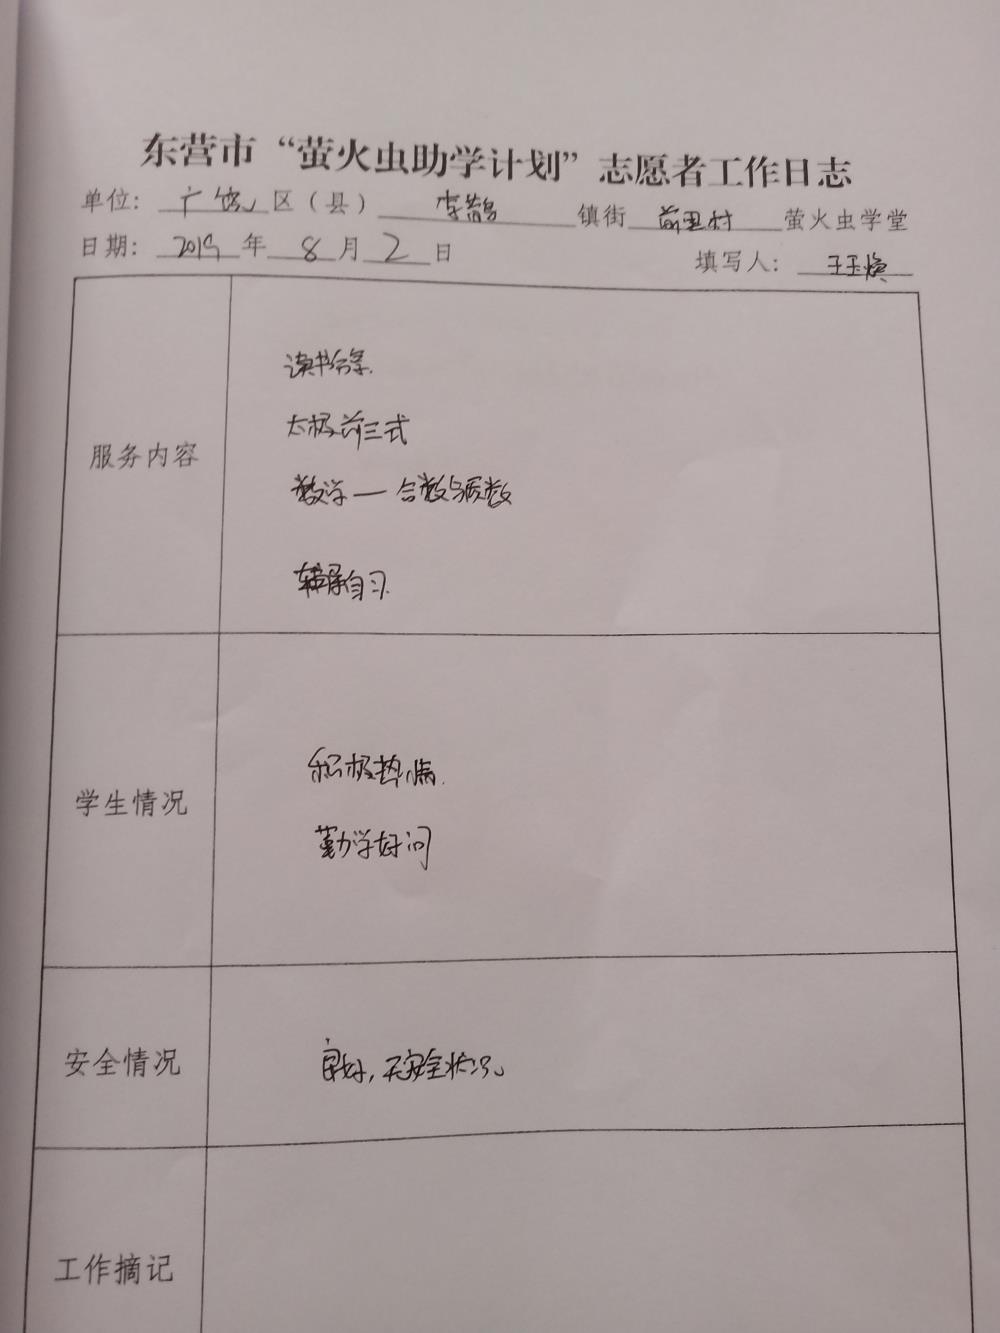 东营市“萤火虫助学计划”志愿者工作日志
单位：广饶区（县）李鹊镇街前里村萤火虫学堂
日期：2019年8月2日 填写人：王玉焕
服务内容
读书分享.
太极前三式
数学—合数与质数
辅导自习.
学生情况
积极热情.
勤学好问
安全情况
良好，无安全状况。
工作摘记